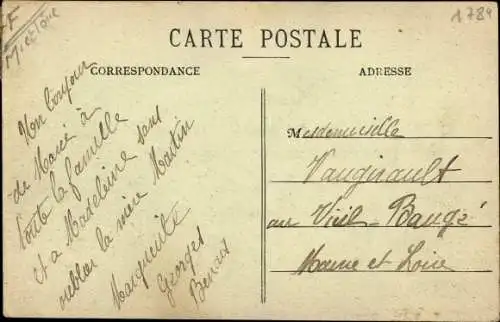 F
Mietoire
1784
CARTE POSTALE
CORRESPONDANCE
ADRESSE
Mon bonjour
de Marie à
toute la famille
et a Madeleine sans
oublier la mère Martin
Marguerite
Georges
Benoit
Mesdemoiselle
Vaugirault
au Vieil-Baugé
Maine et Loire